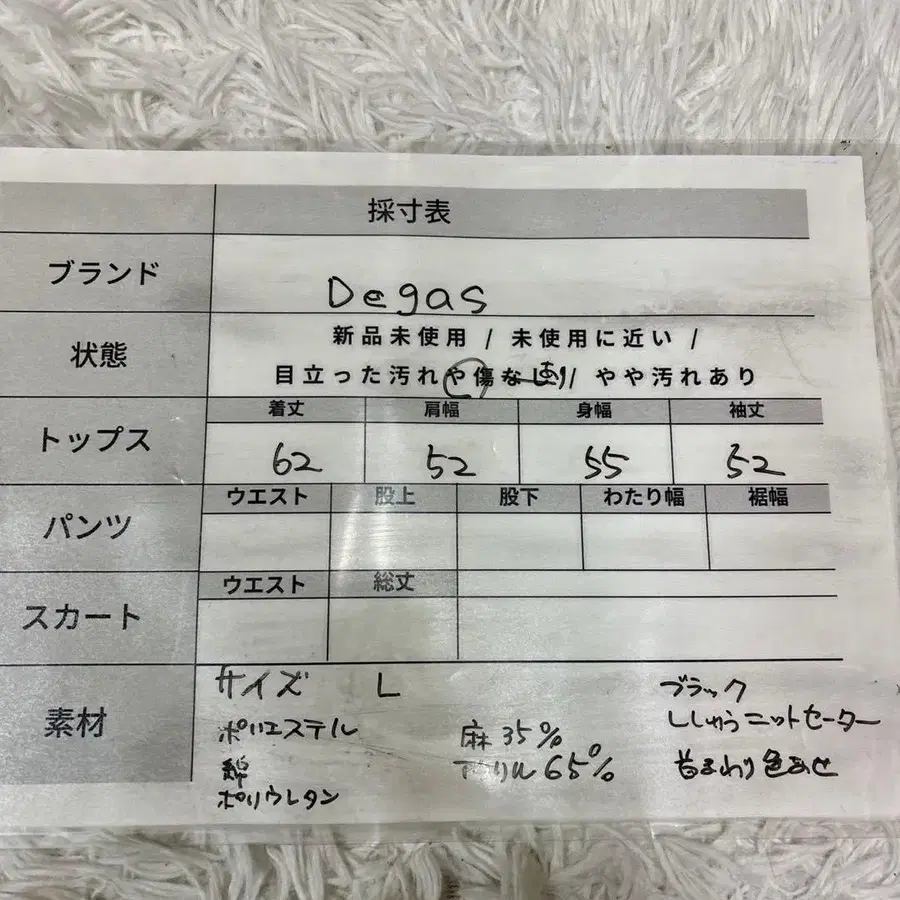 採寸表
ブランド Degas
状態 新品未使用 / 未使用に近い /
目立った汚れや傷なしあり / やや汚れあり
トップス 着丈 肩幅 身幅 袖丈
62 52 55 52
パンツ ウエスト 股上 股下 わたり幅 裾幅
スカート ウエスト 総丈
素材
サイズ L
ポリエステル
綿
ポリウレタン
麻 35%
アクリル 65%
ブラック
ししゅうニットセーター
首まわり色あせ